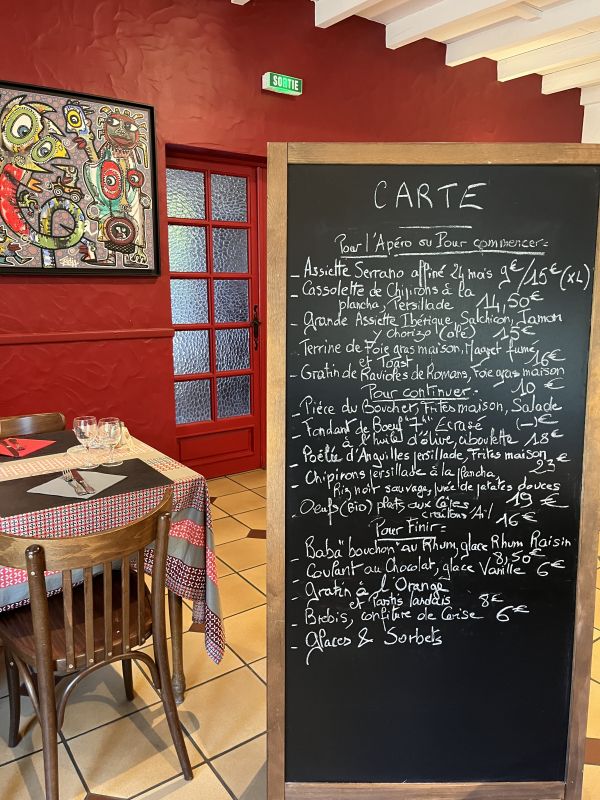 SORTIE
CARTE
Pour l'Apéro ou Pour commencer =
- Assiette Serrano affiné 24 mois 9€/15€ (XL)
- Cassolette de Chipirons à la
plancha, Persillade 14,50€
- Grande Assiette Ibérique, Salchicon, Jamon
x Chorizo (olé) 15€
- Terrine de Foie gras maison, Magret fumé
et Toast 16€
- Gratin de Ravioles de Romans, Foie gras maison
10 €
Pour continuer =
- Pièce du Boucher, Frites maison, Salade
(-)€
- Fondant de Boeuf "7h", Écrasé
à l'huile d'olive, ciboulette 18€
- Poêlée d'Anguilles persillade, Frites maison
23€
- Chipirons persillade à la plancha,
Riz noir sauvage, purée de patates douces
19 €
- Oeufs (Bio) plats, aux Cèpes,
croutons Ail 16€
Pour Finir =
- Baba "bouchon" au Rhum, glace Rhum Raisin
8,50€
- Coulant au Chocolat, glace Vanille 6€
- Gratin à l'Orange
et Pastis Landais 8€
- Brebis, confiture de Cerise 6€
- Glaces & Sorbets